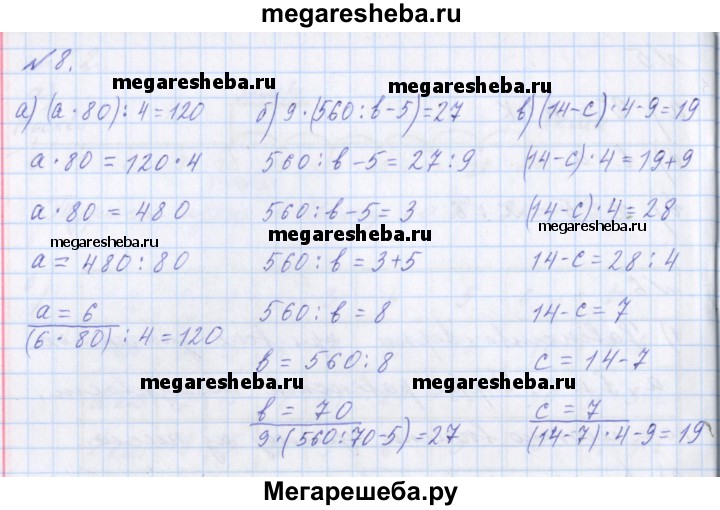 megaresheba.ru
№8.
megaresheba.ru megaresheba.ru
а) (а·80):4=120
а·80=120·4
а·80=480
megaresheba.ru
а=480:80
а=6
(6·80):4=120
б) 9·(560:в-5)=27
560:в-5=27:9
560:в-5=3
megaresheba.ru
560:в=3+5
560:в=8
в=560:8
megaresheba.ru
в=70
9·(560:70-5)=27
в) (14-с)·4-9=19
(14-с)·4=19+9
(14-с)·4=28
megaresheba.ru
14-с=28:4
14-с=7
с=14-7
megaresheba.ru
с=7
(14-7)·4-9=19
Мегарешеба.ру